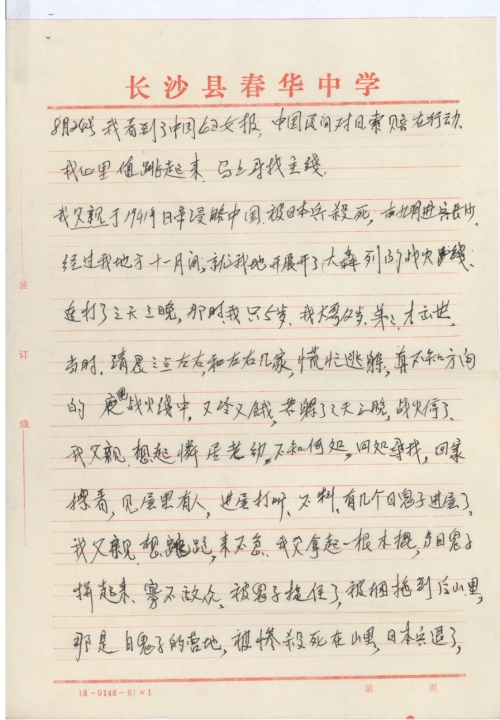 长沙县春华中学
8月24号我看到了中国妇女报，中国民间对日索赔在行动，
我心里值跳起来，马上寻找主线，
我父亲于1941年日帝侵略中国，被日本兵殺死，
经过我地方十一月间，就我地开展开了大森列的战火线
连打了三天三晚，那时我只5岁，我大哥8岁，弟之才出世，
当时，清晨三点左右，和左右几家，慌忙逃躲，真不知方向
的 战火线中，又冷又餓，共躲了三天三晚，战火停了，
我父親，想起憐居老幼，不知何处，回处尋找，回家
探看，见屋里有人，进屋打听，不料，有几个日鬼子进屋了，
我父親，想跳跑，来不急，我父拿起一根木棍，与日鬼子
拼起来，寡不敌众，被鬼子捉住了，被捆拖到后山里，
那是日鬼子的营地，被惨殺死在山里，日本兵退了，
装
订
线
18-0148-87×1
第 页